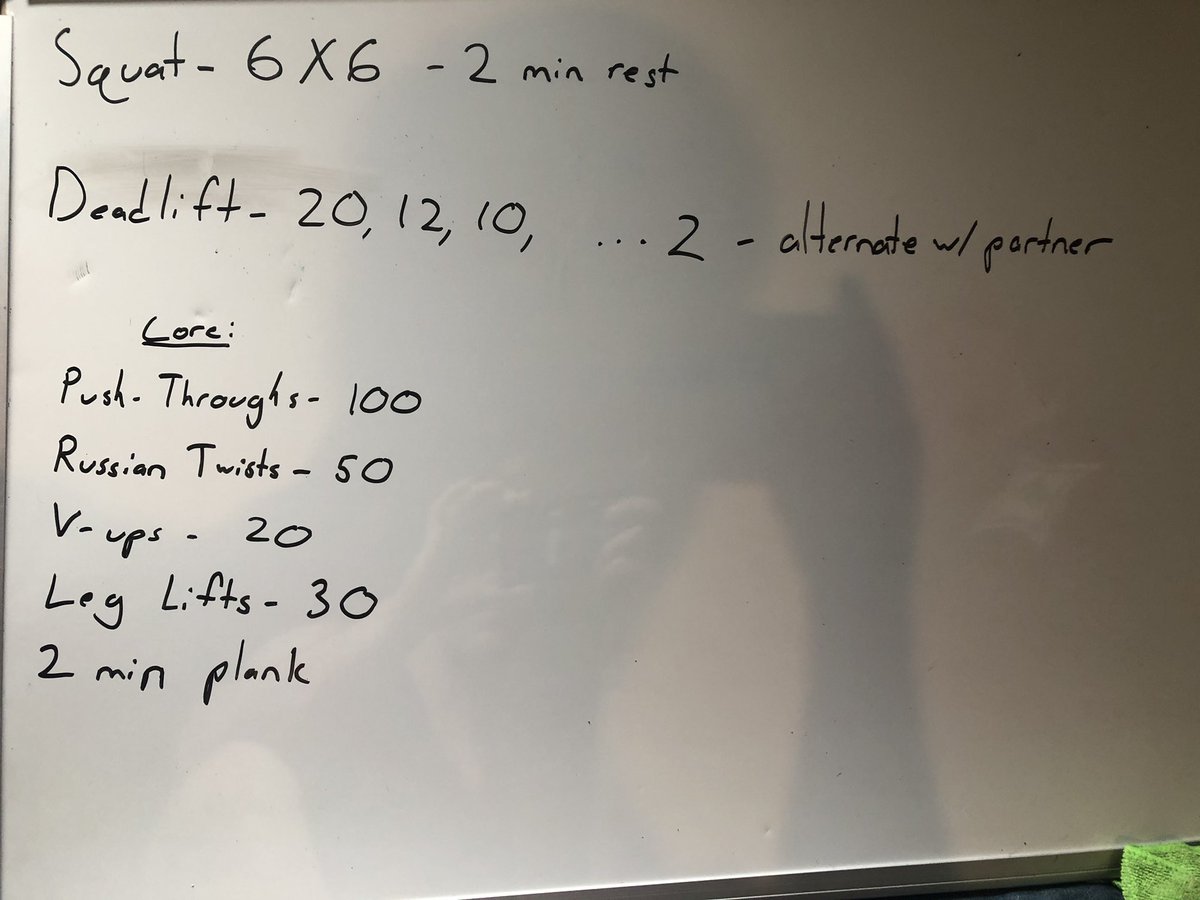 Squat - 6 X 6 - 2 min rest
Deadlift - 20, 12, 10, ... 2 - alternate w/ partner
Core:
Push-Throughs - 100
Russian Twists - 50
V-ups - 20
Leg Lifts - 30
2 min plank